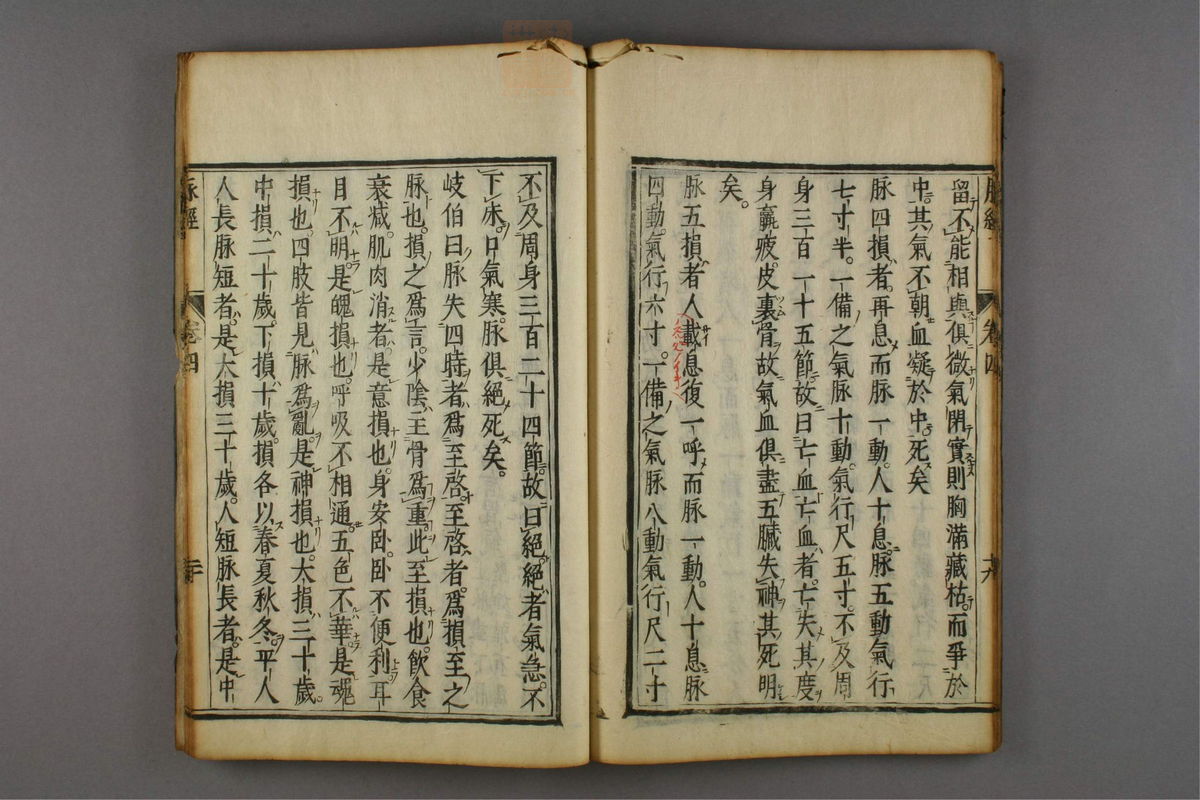 脉經 卷四 十九
留不能相與俱微氣閉實則胸滿藏枯而爭於
中其氣不朝血凝於中死矣
脉四損者再息而脉一動人十息脉五動氣行
七寸半一備之氣脉十動氣行尺五寸不及周
身三百一十五節故曰亡血亡血者亡失其度
身羸疲皮裹骨故氣血俱盡五臟失神其死明
矣
脉五損者人載息復一呼而脉一動人十息脉
四動氣行六寸一備之氣脉八動氣行尺二寸
不及周身三百二十四節故曰絕絕者氣急不
下床口氣寒脉俱絕死矣
岐伯曰脉失四時者爲至啓至啓者爲損至之
脉也損之爲言少陰主骨爲重此至損也飲食
衰減肌肉消者是意損也身安卧卧不便利耳
目不明是魄損也呼吸不相通五色不華是魂
損也四肢皆見脉爲亂是神損也大損三十歲
中損二十歲下損十歲損各以春夏秋冬平人
人長脉短者是大損三十歲人短脉長者是中
脉經 卷四 二十